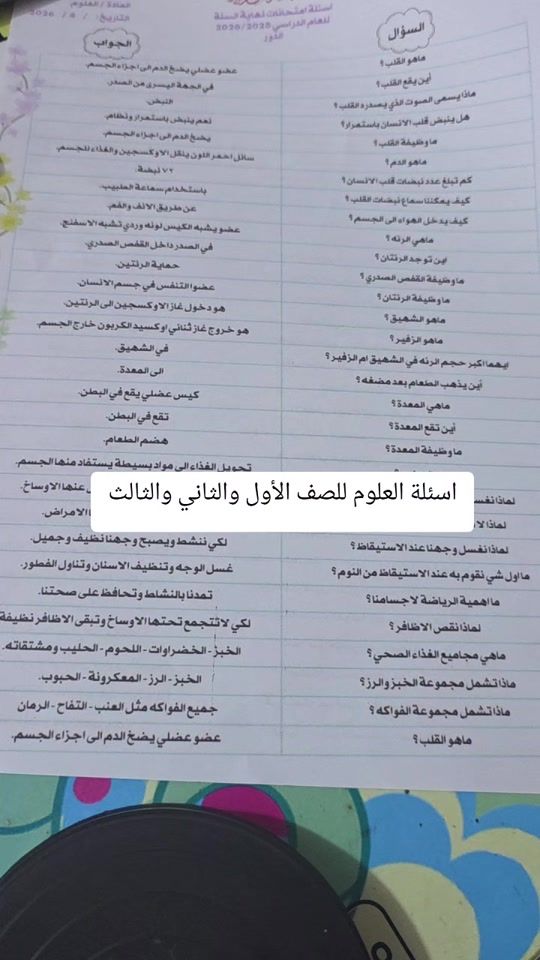 اسئلة امتحانات نهاية السنة
للعام الدراسي 2025/2026
الدور
المادة / العلوم
التاريخ / / 2026
السؤال
الجواب
ماهو القلب؟ عضو عضلي يضخ الدم الى اجزاء الجسم.
أين يقع القلب؟ في الجهة اليسرى من الصدر.
ماذا يسمى الصوت الذي يصدره القلب؟ النبض.
هل ينبض قلب الانسان باستمرار؟ نعم ينبض باستمرار ونظام.
ماوظيفة القلب؟ يضخ الدم الى اجزاء الجسم.
ماهو الدم؟ سائل احمر اللون ينقل الاوكسجين والغذاء للجسم.
كم تبلغ عدد نبضات قلب الانسان؟ ٧٢ نبضة.
كيف يمكننا سماع نبضات القلب؟ باستخدام سماعة الطبيب.
كيف يدخل الهواء الى الجسم؟ عن طريق الانف والفم.
ماهي الرئه؟ عضو يشبه الكيس لونه وردي تشبه الاسفنج.
اين توجد الرئتان؟ في الصدر داخل القفص الصدري.
ماوظيفة القفص الصدري؟ حماية الرئتين.
ماوظيفة الرئتان؟ عضوا التنفس في جسم الانسان.
ماهو الشهيق؟ هو دخول غاز الاوكسجين الى الرئتين.
ماهو الزفير؟ هو خروج غاز ثنائي اوكسيد الكربون خارج الجسم.
ايهما اكبر حجم الرئه في الشهيق ام الزفير؟ في الشهيق.
أين يذهب الطعام بعد مضغه؟ الى المعدة.
ماهي المعدة؟ كيس عضلي يقع في البطن.
أين تقع المعدة؟ تقع في البطن.
ماوظيفة المعدة؟ هضم الطعام.
تحويل الغذاء الى مواد بسيطة يستفاد منها الجسم.
لماذا نغسل عنها الاوساخ.
اسئلة العلوم للصف الأول والثاني والثالث
لماذا الامراض.
لماذا نغسل وجهنا عند الاستيقاظ؟ لكي ننشط ويصبح وجهنا نظيف وجميل.
ما اول شي نقوم به عند الاستيقاظ من النوم؟ غسل الوجه وتنظيف الاسنان وتناول الفطور.
ما اهمية الرياضة لاجسامنا؟ تمدنا بالنشاط وتحافظ على صحتنا.
لماذا نقص الاظافر؟ لكي لا تتجمع تحتها الاوساخ وتبقى الاظافر نظيفة
ماهي مجاميع الغذاء الصحي؟ الخبز - الخضراوات - اللحوم - الحليب ومشتقاته.
ماذا تشمل مجموعة الخبز والرز؟ الخبز - الرز - المعكرونة - الحبوب.
ماذا تشمل مجموعة الفواكه؟ جميع الفواكه مثل العنب - التفاح - الرمان
ماهو القلب؟ عضو عضلي يضخ الدم الى اجزاء الجسم.